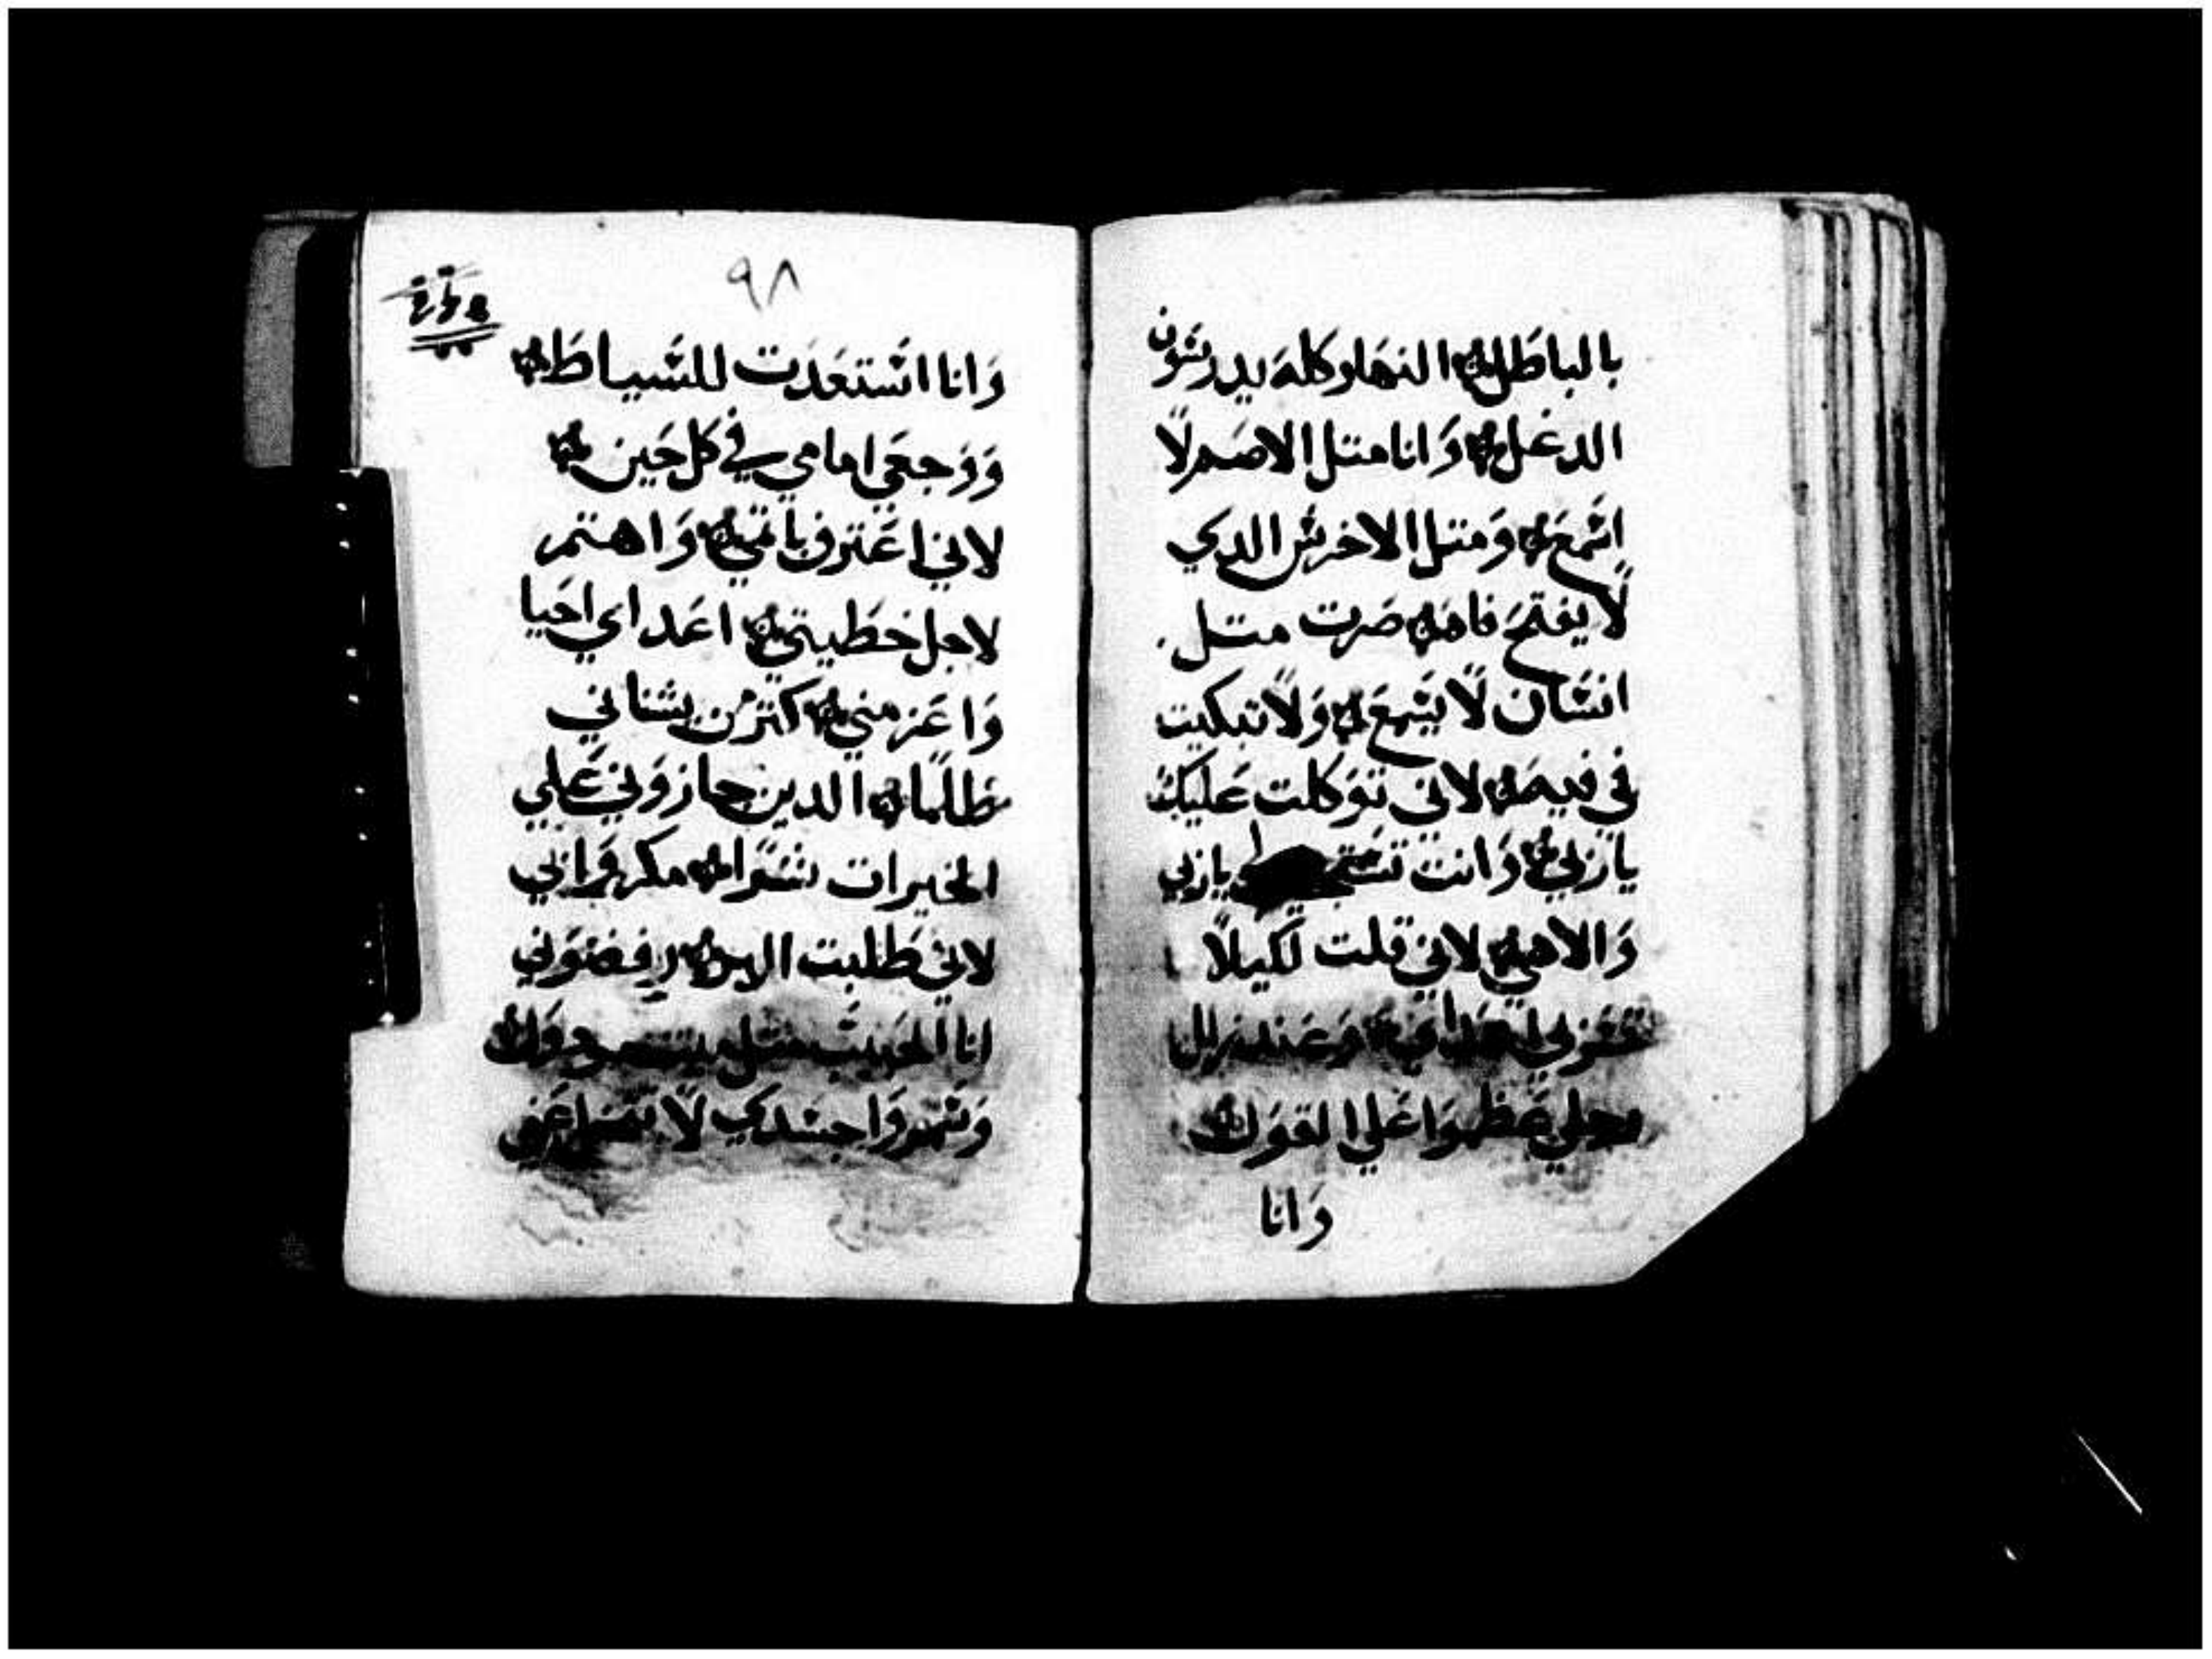 بالباطل النهار كله يدرسون
الدغل وانا متل الاصم لا
اسمع ومتل الاخرس الدي
لا يفتح فاه صرت متل
انسان لا يسمع ولا تبكيت
في فيمه لاني توكلت عليك
ياربي وانت ياربي
والاهي لاني قلت لكيلا
اعداي وعند زلل
رجلي عظموا علي القول
وانا
٩٨
وانا استعدت للسياط
ووجعي امامي في كل حين
لاني اعترف باتمي واهتم
لاجل خطيتي اعداي احيا
واعز مني كتر من يشناني
ظلما الدين جازوني علي
الخيرات شرا
لاني طلبت البر رفضوني
انا الحبيب متل ميت
وسمروا جسدي لا